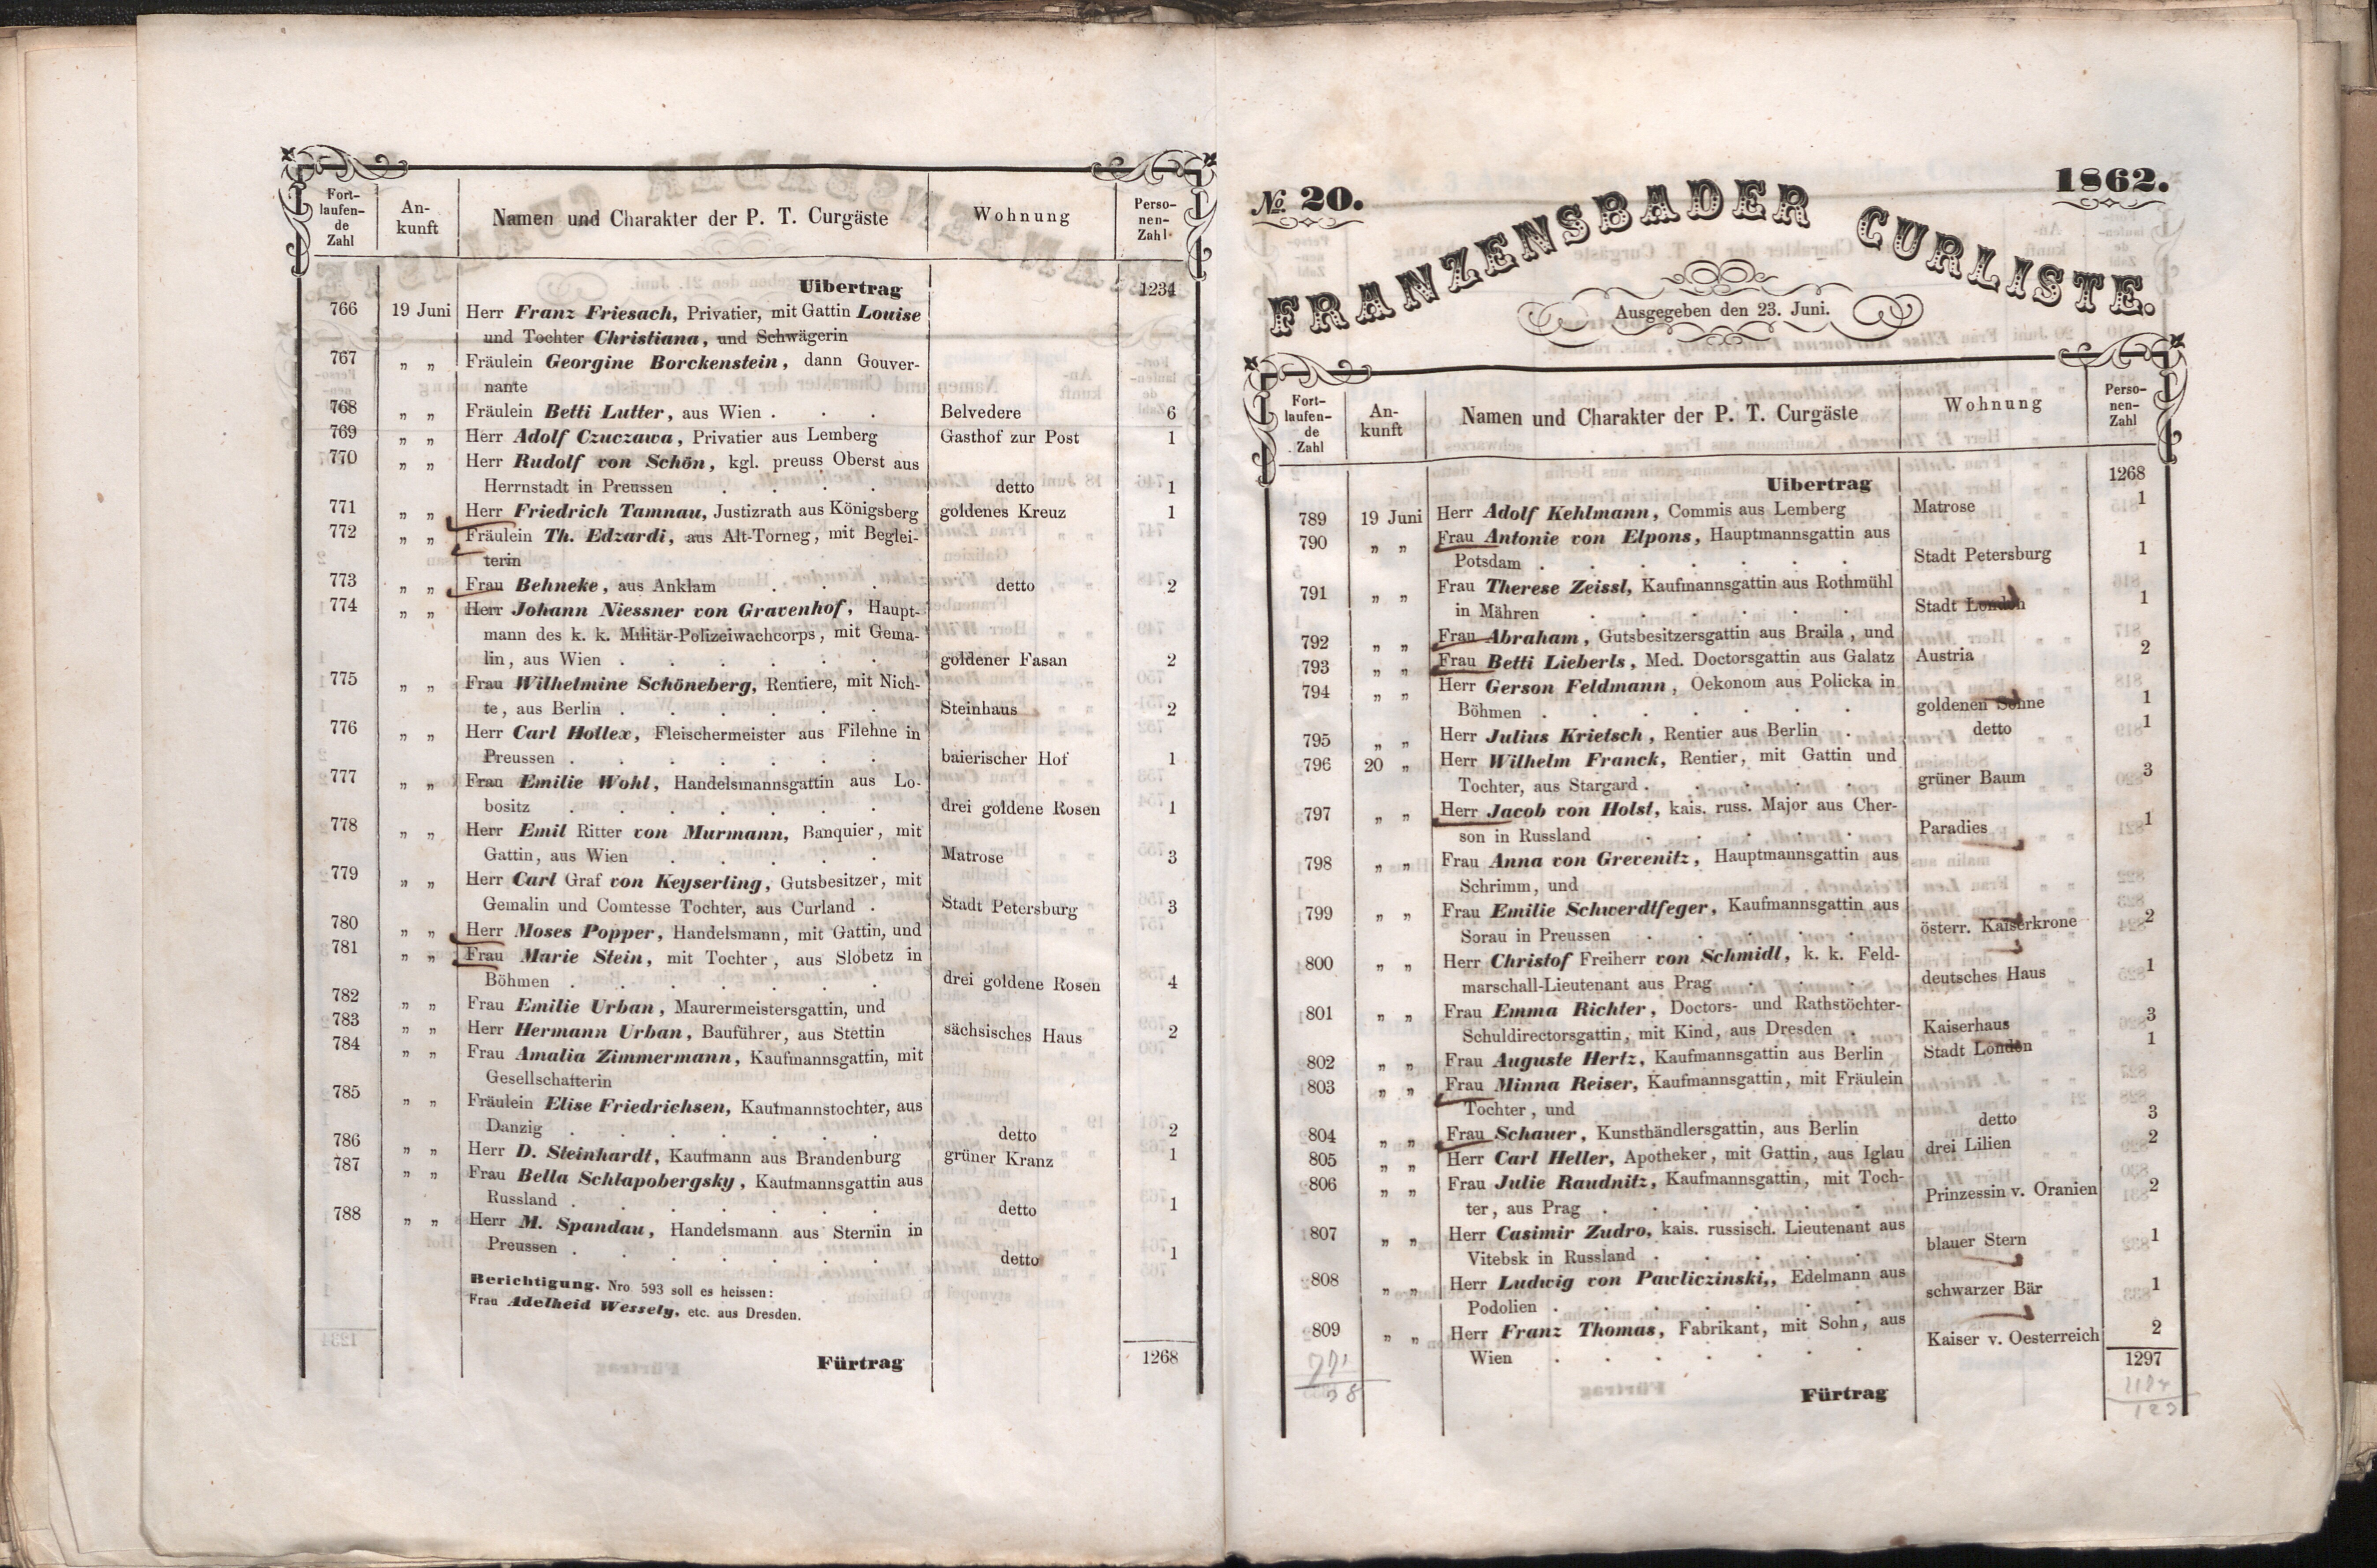 Fort-
laufen-
de
Zahl
An-
kunft
Namen und Charakter der P. T. Curgäste
Wohnung
Perso-
nen-
Zahl
Uibertrag 1234
766 19 Juni Herr Franz Friesach, Privatier, mit Gattin Louise
und Tochter Christiana, und Schwägerin
767 „ „ Fräulein Georgine Borckenstein, dann Gouver-
nante
768 „ „ Fräulein Betti Lutter, aus Wien . . . Belvedere 6
769 „ „ Herr Adolf Czuczawa, Privatier aus Lemberg Gasthof zur Post 1
770 „ „ Herr Rudolf von Schön, kgl. preuss. Oberst aus
Herrnstadt in Preussen . . . . detto 1
771 „ „ Herr Friedrich Tamnau, Justizrath aus Königsberg goldenes Kreuz 1
772 „ „ Fräulein Th. Edzardi, aus Alt-Torneg, mit Beglei-
terin
773 „ „ Frau Behneke, aus Anklam . . . detto 2
774 „ „ Herr Johann Niessner von Gravenhof, Haupt-
mann des k. k. Militär-Polizeiwachcorps, mit Gema-
lin, aus Wien . . . . . . goldener Fasan 2
775 „ „ Frau Wilhelmine Schöneberg, Rentiere, mit Nich-
te, aus Berlin . . . . . . Steinhaus 2
776 „ „ Herr Carl Hollex, Fleischermeister aus Filehne in
Preussen . . . . . . . baierischer Hof 1
777 „ „ Frau Emilie Wohl, Handelsmannsgattin aus Lo-
bositz . . . . . . . drei goldene Rosen 1
778 „ „ Herr Emil Ritter von Murmann, Banquier, mit
Gattin, aus Wien . . . . . Matrose 3
779 „ „ Herr Carl Graf von Keyserling, Gutsbesitzer, mit
Gemalin und Comtesse Tochter, aus Curland . Stadt Petersburg 3
780 „ „ Herr Moses Popper, Handelsmann, mit Gattin, und
781 „ „ Frau Marie Stein, mit Tochter, aus Slobetz in
Böhmen . . . . . . . drei goldene Rosen 4
782 „ „ Frau Emilie Urban, Maurermeistersgattin, und
783 „ „ Herr Hermann Urban, Bauführer, aus Stettin sächsisches Haus 2
784 „ „ Frau Amalia Zimmermann, Kaufmannsgattin, mit
Gesellschafterin
785 „ „ Fräulein Elise Friedrichsen, Kaufmannstochter, aus
Danzig . . . . . . . detto 2
786 „ „ Herr D. Steinhardt, Kaufmann aus Brandenburg grüner Kranz 1
787 „ „ Frau Bella Schlapobergsky, Kaufmannsgattin aus
Russland . . . . . . . detto 1
788 „ „ Herr M. Spandau, Handelsmann aus Sternin in
Preussen . . . . . . . detto 1
Berichtigung. Nro 593 soll es heissen:
Frau Adelheid Wessely, etc. aus Dresden.
Fürtrag 1268
№ 20. 1862.
FRANZENSBADER CURLISTE.
Ausgegeben den 23. Juni.
Fort-
laufen-
de
Zahl
An-
kunft
Namen und Charakter der P. T. Curgäste
Wohnung
Perso-
nen-
Zahl
Uibertrag 1268
789 19 Juni Herr Adolf Kehlmann, Commis aus Lemberg Matrose 1
790 „ „ Frau Antonie von Elpons, Hauptmannsgattin aus
Potsdam . . . . . . . Stadt Petersburg 1
791 „ „ Frau Therese Zeissl, Kaufmannsgattin aus Rothmühl
in Mähren . . . . . Stadt London 1
792 „ „ Frau Abraham, Gutsbesitzersgattin aus Braila, und
793 „ „ Frau Betti Lieberls, Med. Doctorsgattin aus Galatz Austria 2
794 „ „ Herr Gerson Feldmann, Oekonom aus Policka in
Böhmen . . . . . . . goldenen Sonne 1
795 „ „ Herr Julius Krietsch, Rentier aus Berlin . detto 1
796 20 „ Herr Wilhelm Franck, Rentier, mit Gattin und
Tochter, aus Stargard . . . . . grüner Baum 3
797 „ „ Herr Jacob von Holst, kais. russ. Major aus Cher-
son in Russland . . . . . Paradies 1
798 „ „ Frau Anna von Grevenitz, Hauptmannsgattin aus
Schrimm, und
799 „ „ Frau Emilie Schwerdtfeger, Kaufmannsgattin aus
Sorau in Preussen . . . . . österr. Kaiserkrone 2
800 „ „ Herr Christof Freiherr von Schmidl, k. k. Feld-
marschall-Lieutenant aus Prag . . . deutsches Haus 1
801 „ „ Frau Emma Richter, Doctors- und Rathstöchter-
Schuldirectorsgattin, mit Kind, aus Dresden . Kaiserhaus 3
802 „ „ Frau Auguste Hertz, Kaufmannsgattin aus Berlin Stadt London 1
803 „ „ Frau Minna Reiser, Kaufmannsgattin, mit Fräulein
Tochter, und
804 „ „ Frau Schauer, Kunsthändlersgattin, aus Berlin detto 3
805 „ „ Herr Carl Heller, Apotheker, mit Gattin, aus Iglau drei Lilien 2
806 „ „ Frau Julie Raudnitz, Kaufmannsgattin, mit Toch-
ter, aus Prag . . . . . . Prinzessin v. Oranien 2
807 „ „ Herr Casimir Zudro, kais. russisch. Lieutenant aus
Vitebsk in Russland . . . . . blauer Stern 1
808 „ „ Herr Ludwig von Pawliczinski,, Edelmann aus
Podolien . . . . . . . schwarzer Bär 1
809 „ „ Herr Franz Thomas, Fabrikant, mit Sohn, aus
Wien . . . . . . . Kaiser v. Oesterreich 2
1297
Fürtrag